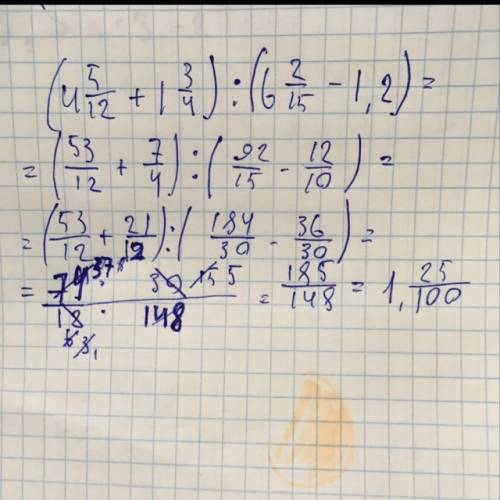 (4 5/12 + 1 3/4) : (6 2/15 - 1,2) =
= (53/12 + 7/4) : (92/15 - 12/10) =
= (53/12 + 21/12) : (184/30 - 36/30) =
= 74 37 · 30 15 5 / 18 6 3 1 · 148 = 185/148 = 1, 25/100